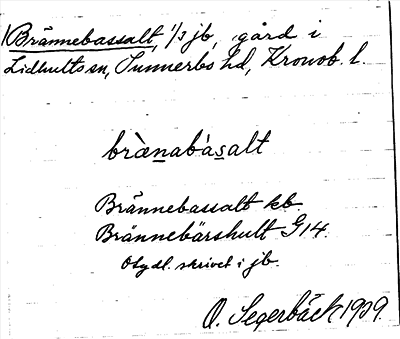 Brännebassalt, 1/3 jb, gård i
Lidhults sn, Sunnerbo hd, Kronob. l.
brænabàsalt
Brännebassalt kb.
Brännebärshult G14.
Otydl. skrivet i jb.
O. Segerbäck 1909.